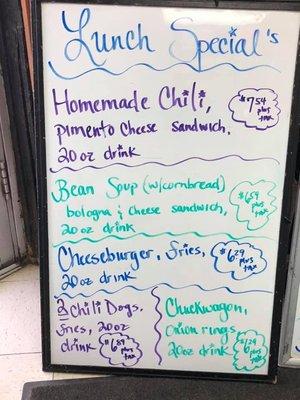 Lunch Special's
Homemade Chili,
pimento cheese sandwich,
20 oz drink
$7.54
plus
tax
Bean Soup (w/cornbread)
bologna & cheese sandwich,
20 oz drink
plus
tax
Cheeseburger, fries,
20oz drink
$6.29
plus
tax
2 Chili Dogs,
fries, 20oz
drink
$6.89
plus
tax
Chuckwagon,
onion rings
20oz drink
plus
tax